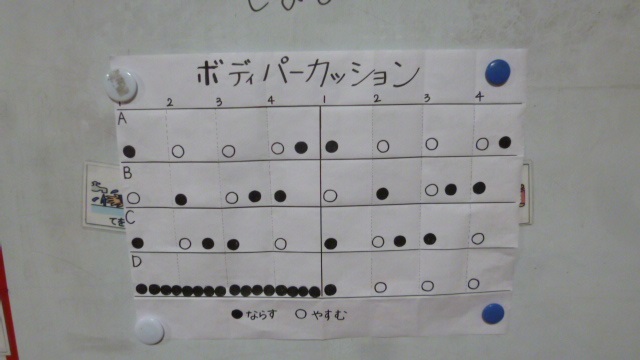 ボディパーカッション
2 3 4 1 2 3 4
A
B
C
D
●ならす ○やすむ